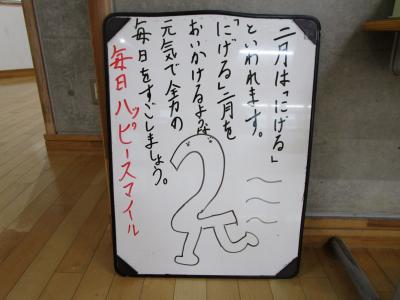 二月は「にげる」
といわれます。
「にげる」二月を
おいかけるような
元気で全力の
毎日をすごしましょう。
毎日ハッピースマイル